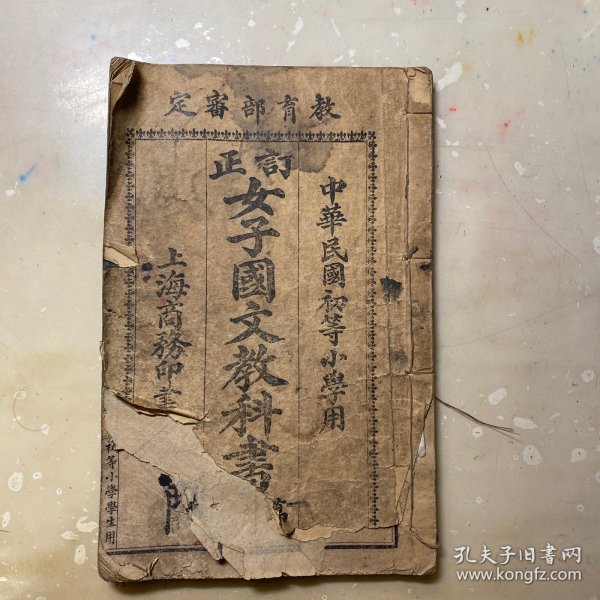 教育部審定
中華民國初等小學用
訂正
女子國文教科書
第
上海商務印書
初等小學學生用
孔夫子旧書网
www.kongfz.com